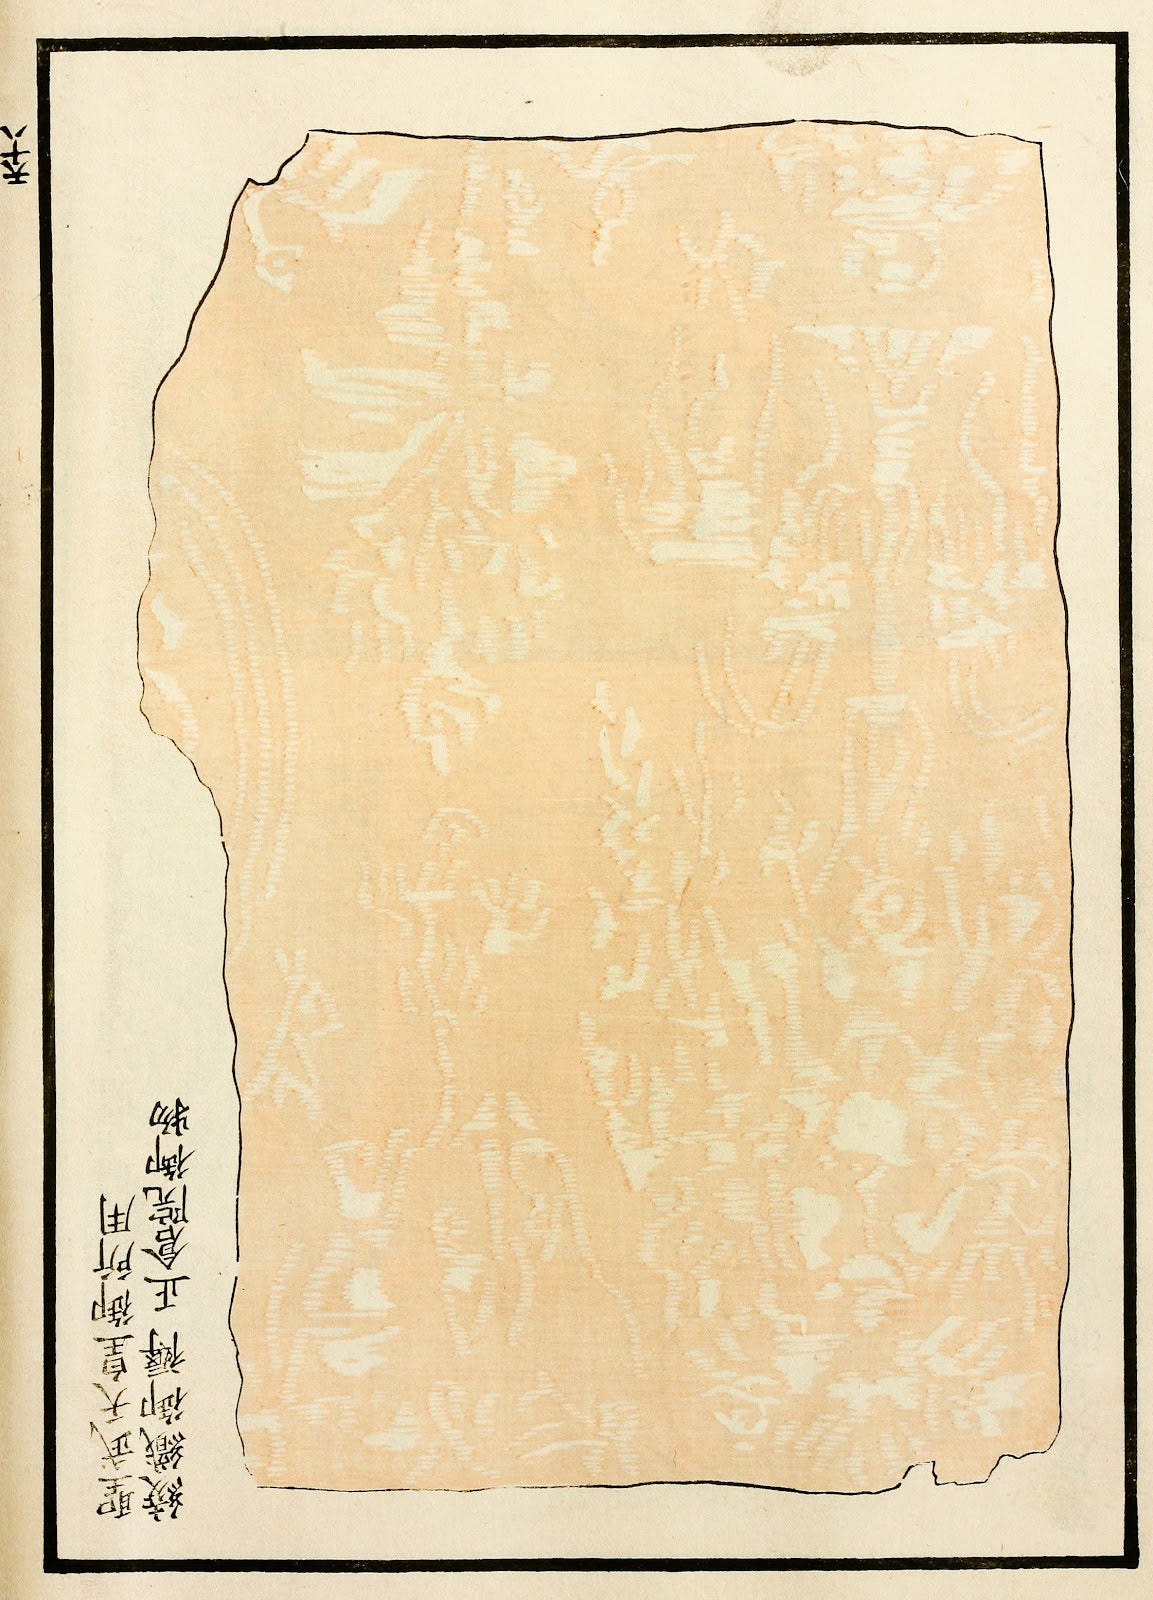 聖武天皇御所用
綾織御褥 正倉院御物